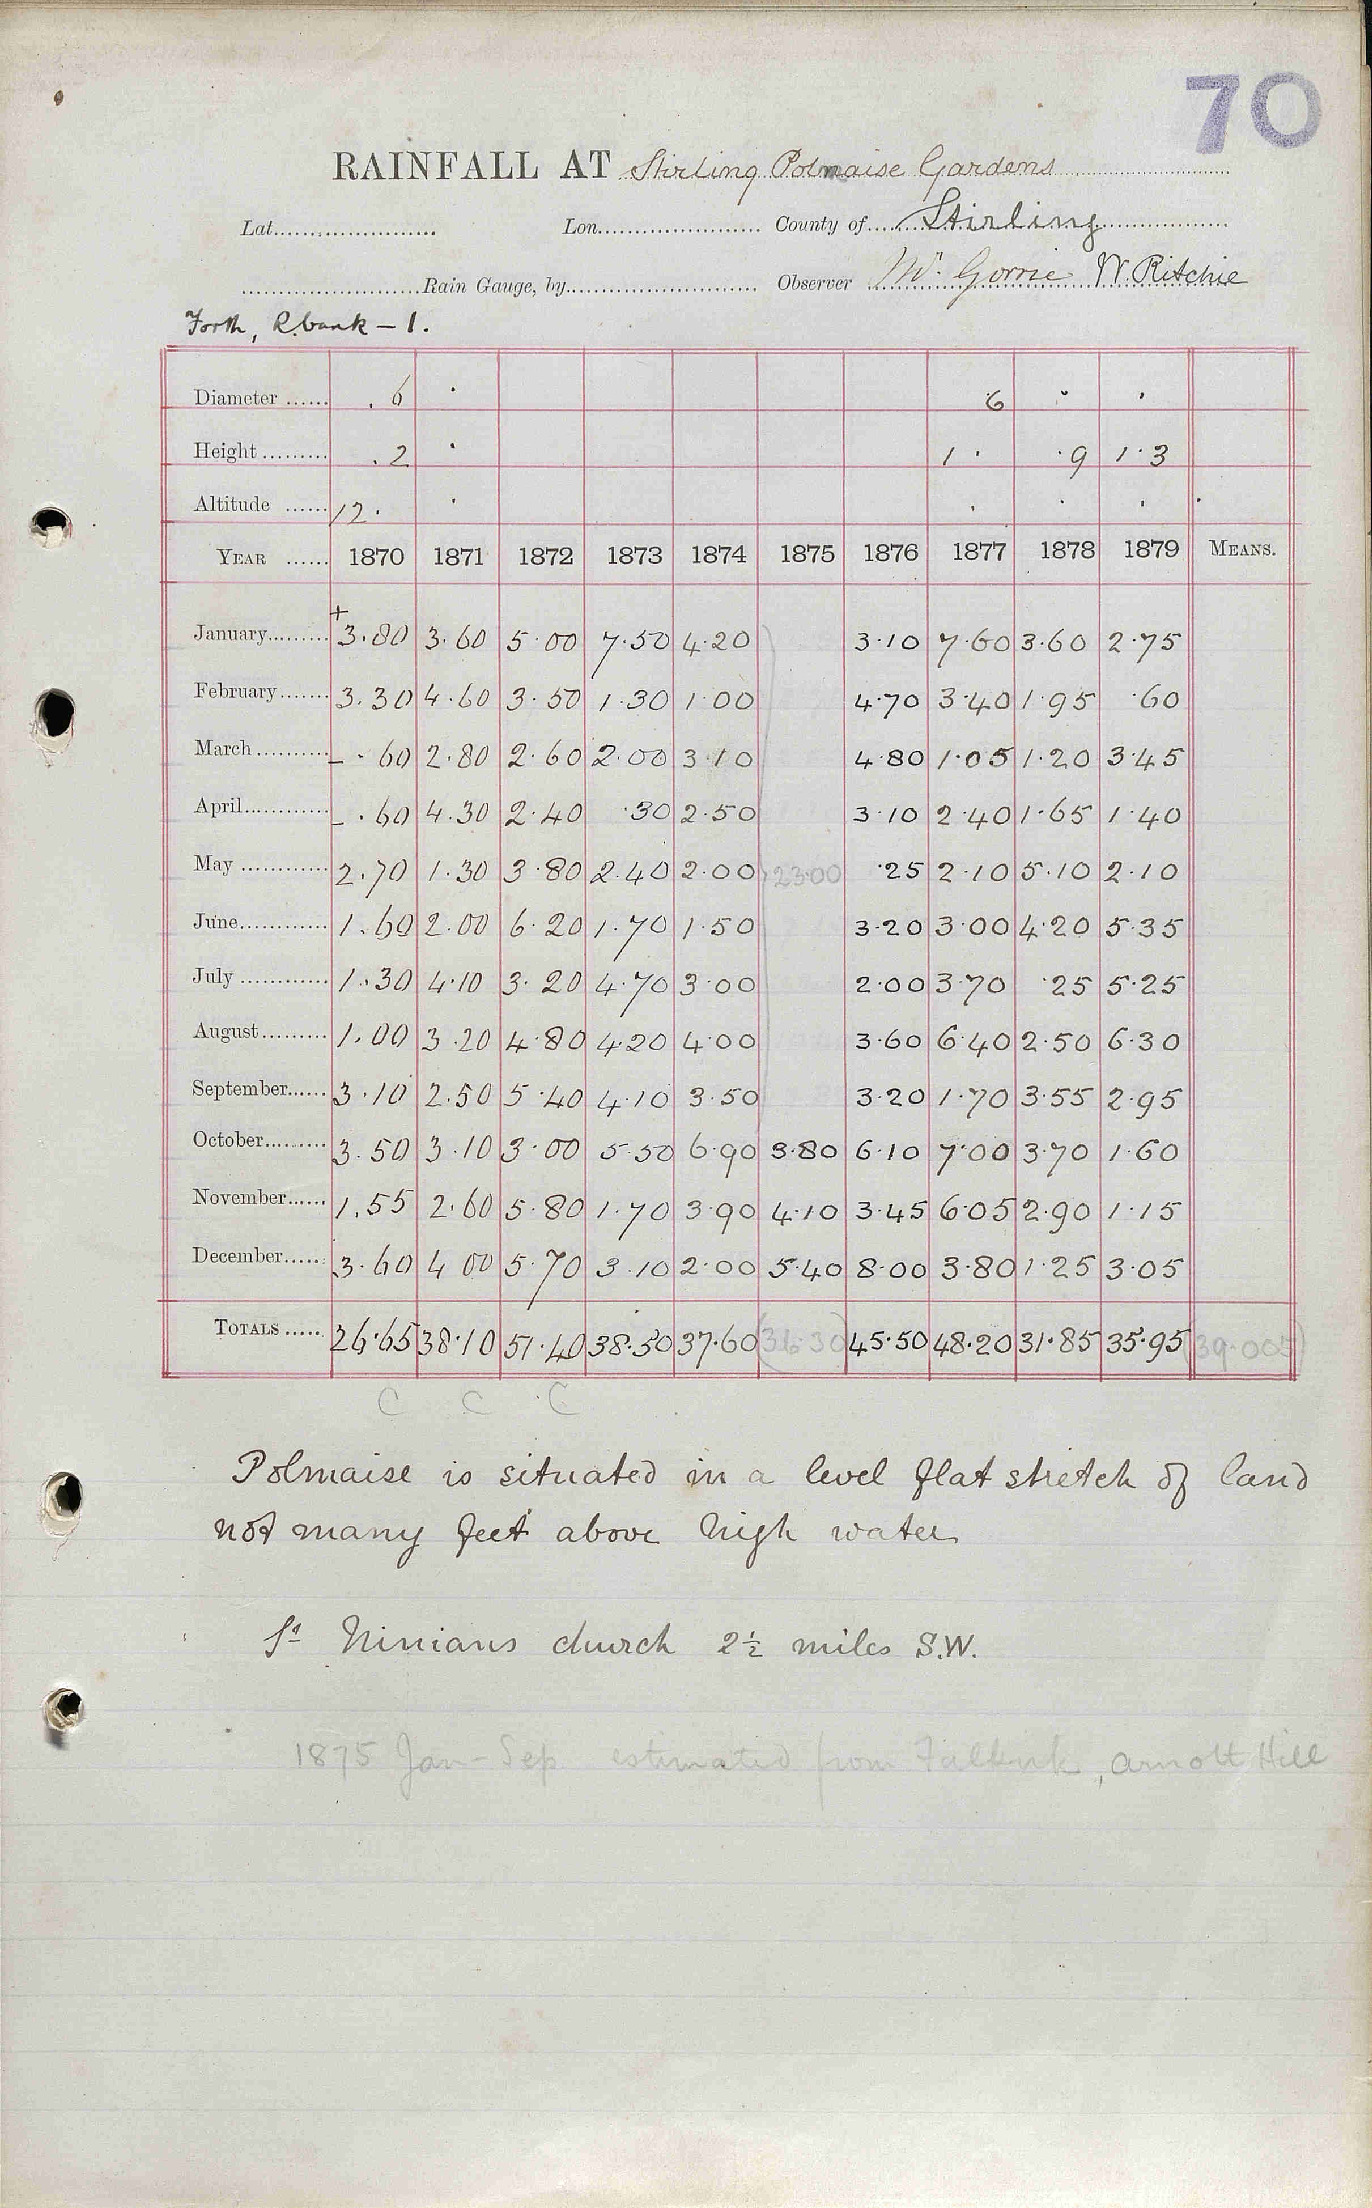 70
RAINFALL AT Stirling Polmaise Gardens
Lat. Lon. County of Stirling
Rain Gauge, by Observer Mr. Gorrie W. Ritchie
Forth, R.bank – 1.
Diameter ...... . 6 · 6 · ·
Height ......... . 2 · 1 · · 9 1 · 3
Altitude ...... 12 · · · · · ·
YEAR ...... 1870 1871 1872 1873 1874 1875 1876 1877 1878 1879 MEANS.
+
January......... 3.80 3.60 5.00 7.50 4.20 3.10 7.60 3.60 2.75
February....... 3.30 4.60 3.50 1.30 1.00 4.70 3.40 1.95 .60
March.......... – .60 2.80 2.60 2.00 3.10 4.80 1.05 1.20 3.45
April............ – .60 4.30 2.40 .30 2.50 3.10 2.40 1.65 1.40
May ............ 2.70 1.30 3.80 2.40 2.00 23.00 .25 2.10 5.10 2.10
June............. 1.60 2.00 6.20 1.70 1.50 3.20 3.00 4.20 5.35
July ............. 1.30 4.10 3.20 4.70 3.00 2.00 3.70 .25 5.25
August.......... 1.00 3.20 4.80 4.20 4.00 3.60 6.40 2.50 6.30
September...... 3.10 2.50 5.40 4.10 3.50 3.20 1.70 3.55 2.95
October......... 3.50 3.10 3.00 5.50 6.90 3.80 6.10 7.00 3.70 1.60
November...... 1.55 2.60 5.80 1.70 3.90 4.10 3.45 6.05 2.90 1.15
December...... 3.60 4.00 5.70 3.10 2.00 5.40 8.00 3.80 1.25 3.05
TOTALS ..... 26.65 38.10 51.40 38.50 37.60 (36.30) 45.50 48.20 31.85 35.95 (39.005)
C C C
Polmaise is situated in a level flat stretch of land
not many feet above high water
St Ninians church 2½ miles S.W.
1875 Jan – Sep estimated from Falkirk, Arnott Hill